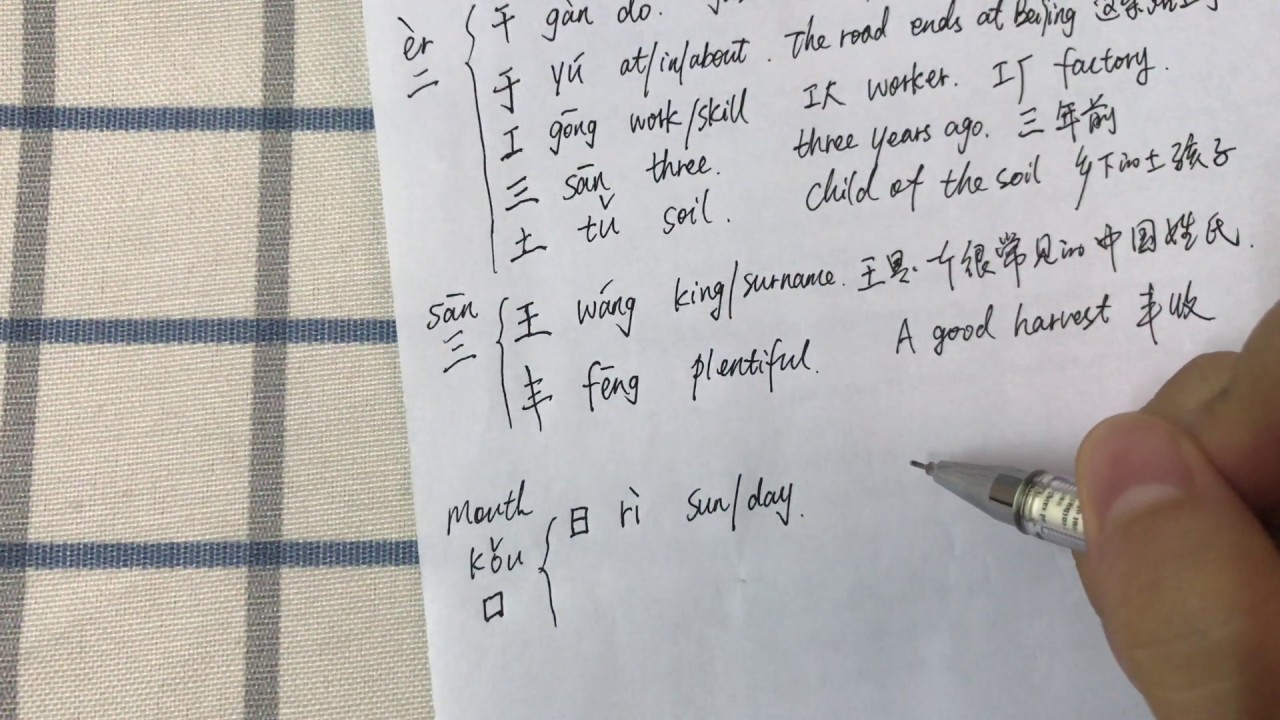 èr
二
干 gàn do.
于 yú at/in/about. The road ends at Beijing
工 gōng work/skill 工人 worker. 工厂 factory.
三 sān three. three years ago. 三年前
土 tǔ soil. child of the soil 乡下的土孩子
sān
三
王 wáng king/surname. 王是一个很常见的中国姓氏.
丰 fēng plentiful. A good harvest 丰收
mouth
kǒu
口
日 rì sun/day.